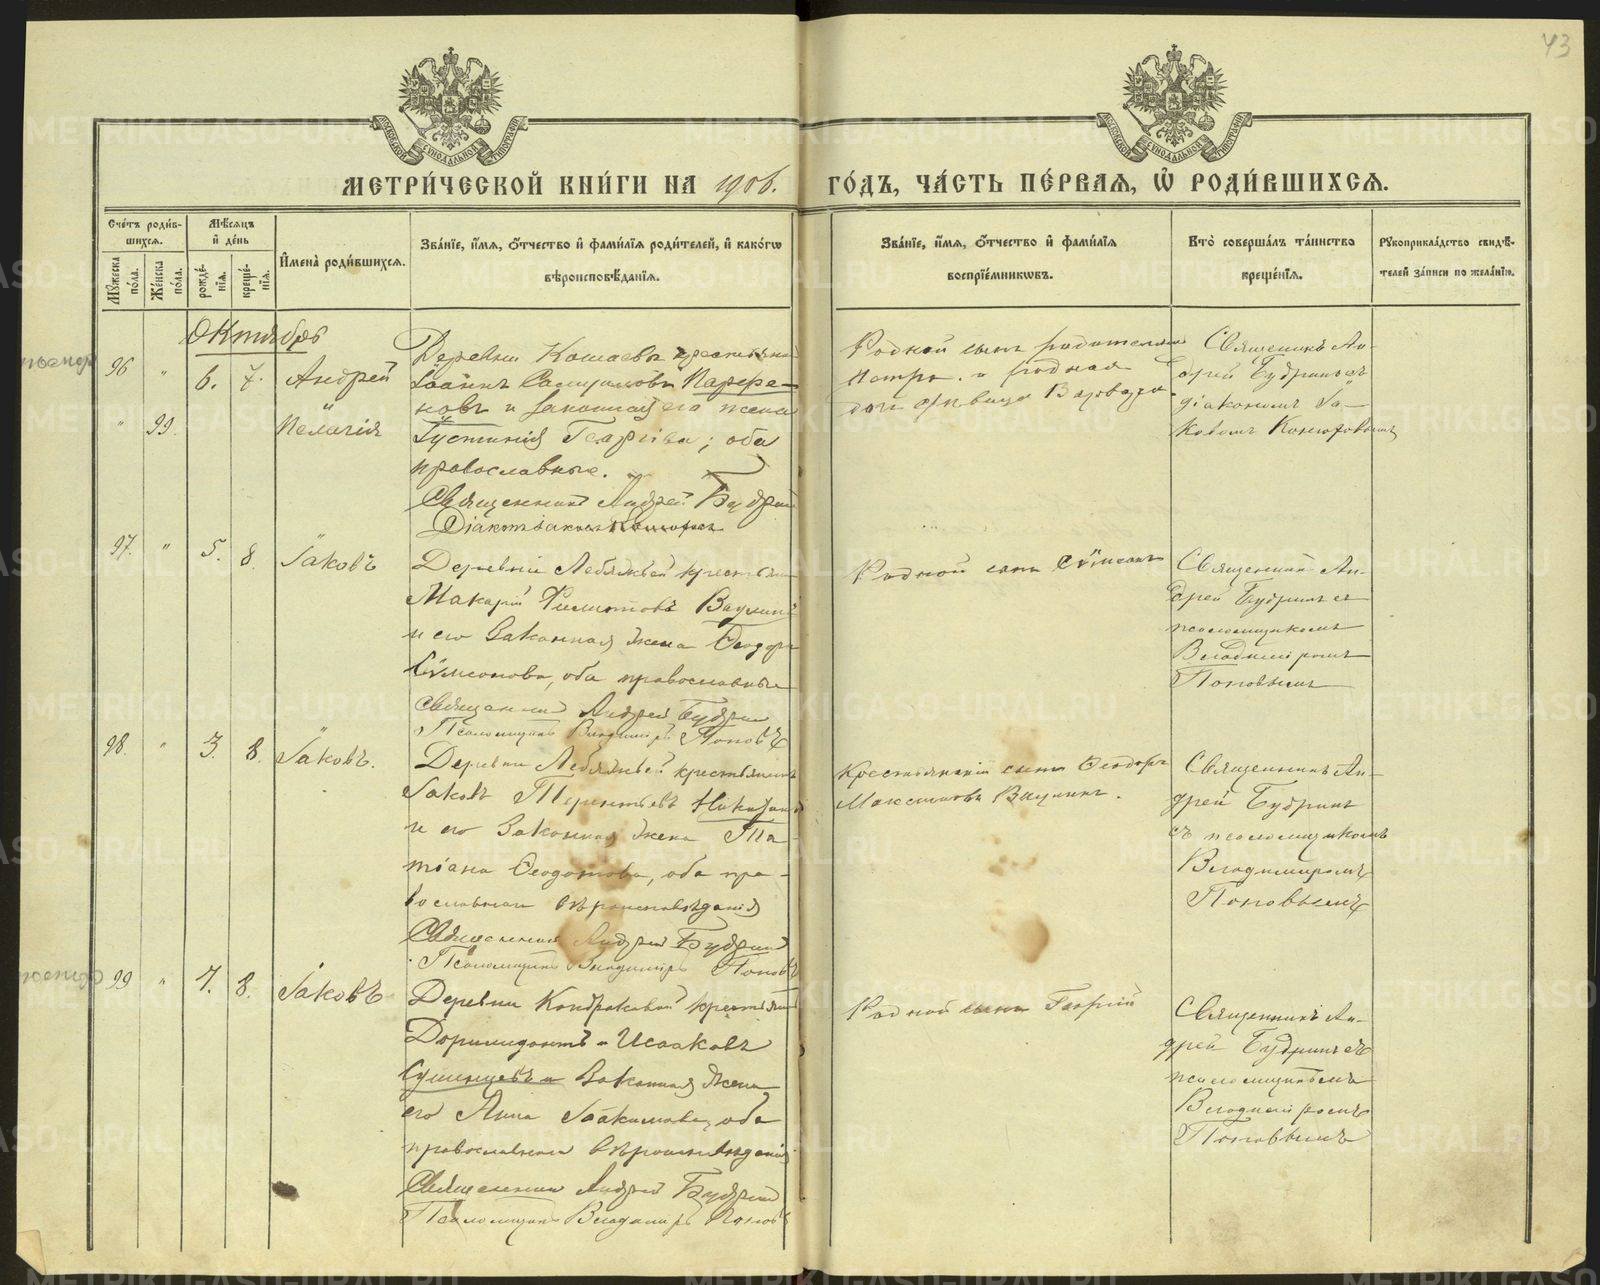 43
МОСКОВСКОЙ СУНОДАЛЬНОЙ ТИПОГРАФІИ
МОСКОВСКОЙ СУНОДАЛЬНОЙ ТИПОГРАФІИ
МЕТРИ́ЧЕСКОЙ КНИ́ГИ НА 1906. ГО́ДЪ, ЧА́СТЬ ПЕ́РВАЯ, Ѡ РОДИ́ВШИХСЯ.
Сче́тъ роди́в-
шихся.
Мꙋ́жеска по́ла.
Же́нска по́ла.
Мѣ́сяцъ и де́нь
рожде́нїя.
креще́нїя.
Имена̀ роди́вшихся.
Зва́нїе, и́мя, о́тчество и фами́лїя роди́телей, и како́гѡ
вѣроисповѣ́данїя.
Зва́нїе, и́мя, о́тчество и фами́лїя
воспрїе́мникѡвъ.
Кто̀ соверша́лъ та́инство
креще́нїя.
Рꙋкоприкла́дство свидѣ́-
телей за́писи по жела́нїю.
Октябрь
96 " 6. 7. Андрей
" 99. Пелагія
Деревни
Іоаннъ Парфе-
новъ и законная его жена
Іустинія Георгіева; оба
православные.
Священникъ Андрей Будринъ
Родной сынъ
Петръ и родная
дочь девица Варвара
Священникъ Ан-
дрей Будринъ съ
діакономъ Іа-
ковомъ
97. " 5. 8. Іаковъ
Деревни Лебяжьей крестьянинъ
Макарій Филитовъ Ваулинъ
и его законная жена Ѳеодора
Сѵмеонова, оба православные
Священникъ Андрей Будринъ
Псаломщикъ Владиміръ Поповъ
Родной сынъ Сѵмеонъ
Священникъ Ан-
дрей Будринъ съ
псаломщикомъ
Владиміромъ
Поповымъ
98. " 3. 8. Іаковъ.
Деревни Лебяжьей крестьянинъ
Іаковъ Терентьевъ
и его законная жена Та-
тіана Ѳеодотова, оба пра-
вославнаго вѣроисповѣданія
Священникъ Андрей Будринъ
Псаломщикъ Владиміръ Поповъ
Крестьянскій сынъ Ѳеодоръ
Максимовъ Ваулинъ.
Священникъ Ан-
дрей Будринъ
съ псаломщикомъ
Владиміромъ
Поповымъ
99 " 7. 8. Іаковъ
Деревни Кондраковой крестьянинъ
Доримидонтъ Исааковъ
законная жена
его Анна Іоакимова, оба
православнаго вѣроисповѣданія
Священникъ Андрей Будринъ
Псаломщикъ Владиміръ Поповъ
Родной сынъ Георгій
Священникъ Ан-
дрей Будринъ съ
псаломщикомъ
Владиміромъ
Поповымъ
METRIKI.GASO-URAL.RU